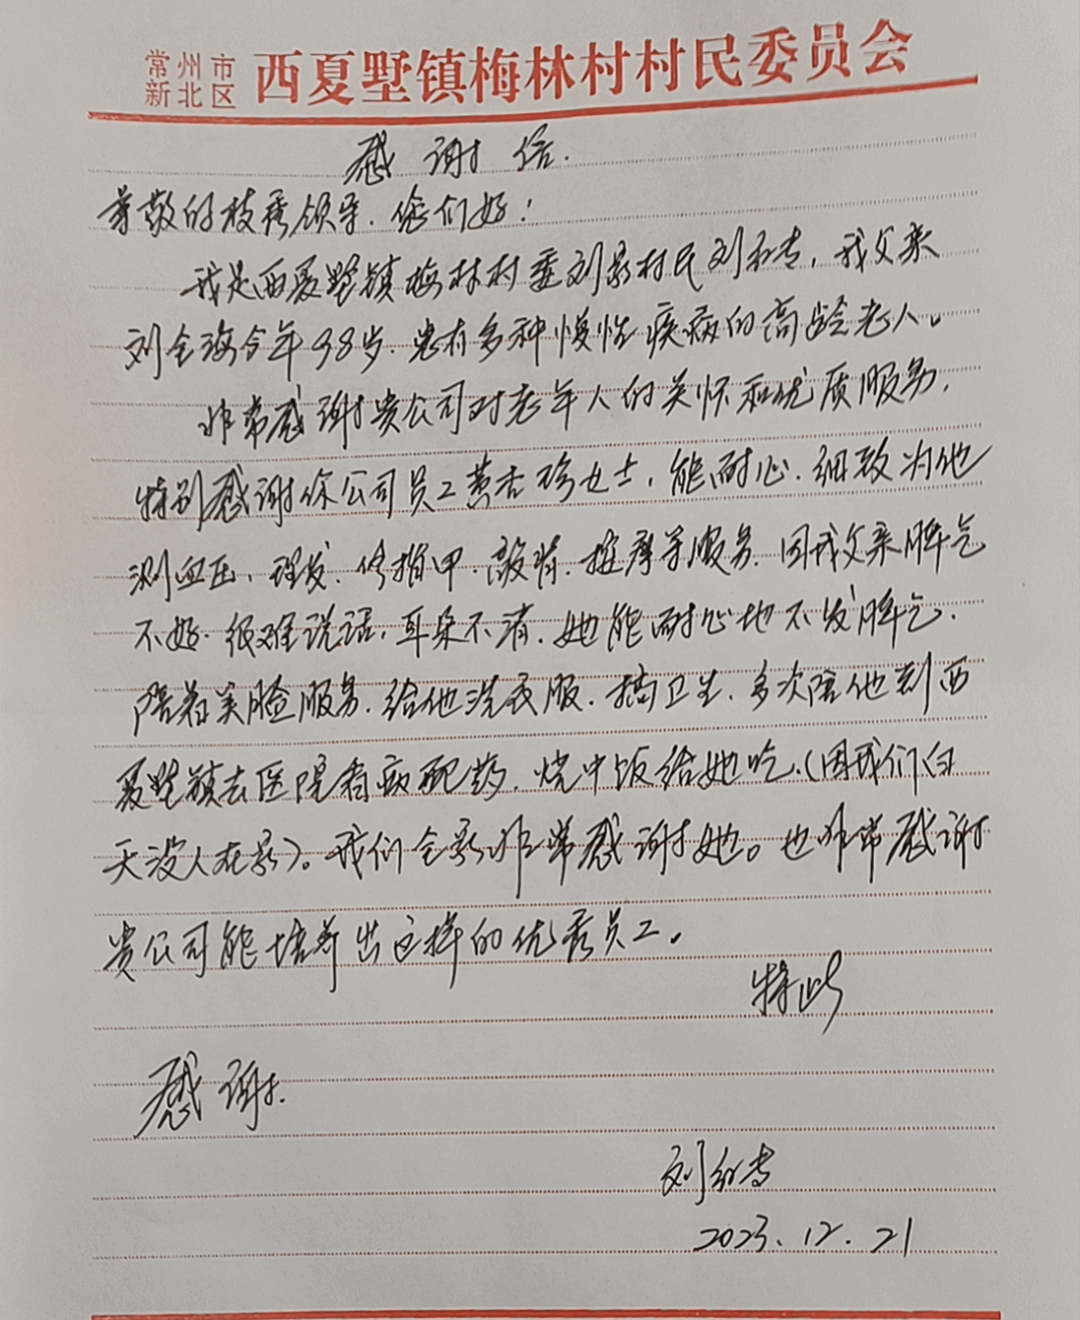 常州市
新北区
西夏墅镇梅林村村民委员会
感谢信.
尊敬的枝秀领导.您们好!
我是西夏墅镇梅林村委刘家村民刘和专,我父亲
刘全海今年98岁.患有多种慢性疾病的高龄老人。
非常感谢贵公司对老年人的关怀和优质服务.
特别感谢你公司员工黄杏珍女士,能耐心.细致为他
测血压、理发.修指甲.敲背.推摩等服务.因我父亲脾气
不好.很难说话,耳朵不清.她能耐心地不发脾气.
陪着笑脸服务.给他洗衣服.搞卫生.多次陪他到西
夏墅镇去医院看病配药.烧中饭给她吃.(因我们白
天没人在家)。我们全家非常感谢她。也非常感谢
贵公司能培养出这样的优秀员工。
特此
感谢.
刘和专
2023.12.21